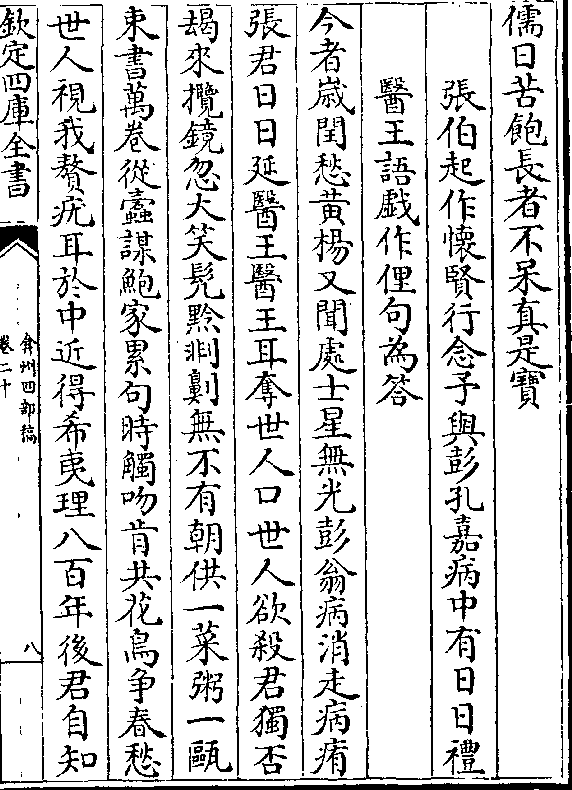 儒日苦飽長者不呆真是寶
張伯起作懷賢行念予與彭孔嘉病中有日日禮
醫王語戯作俚句為答
今者歲閏愁黃楊又聞處士星無光彭翁病消走病痏
張君日日延醫王醫王耳奪世人口世人欲殺君獨否
朅來攬鏡忽大笑髠黥刵劓無不有朝供一菜粥一甌
束書萬卷從蠧謀鮑家累句時觸吻肯共花鳥争春愁
世人視我贅疣耳於中近得希夷理八百年後君自知
欽定四庫全書
弇州四部稿
卷二十
八